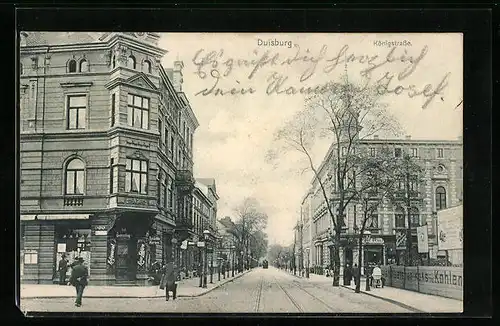 Duisburg
Königstraße.
Es grüßt dich herzlich
dein Kamerad Josef.
Kohlen